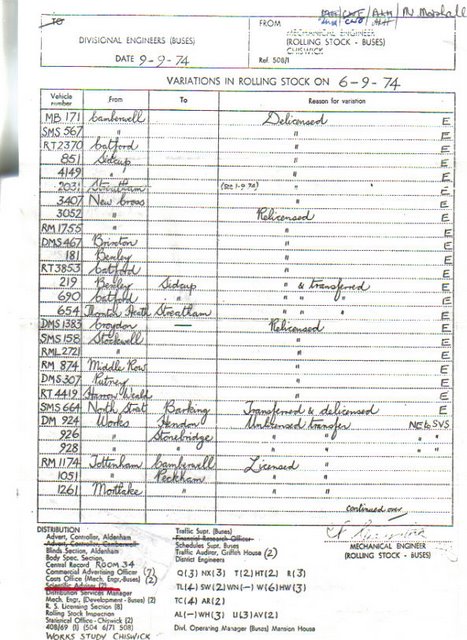 TO
DIVISIONAL ENGINEERS (BUSES)
DATE 9-9-74
FROM
MECHANICAL ENGINEER
(ROLLING STOCK - BUSES)
CHISWICK
Ref. 508/1
VARIATIONS IN ROLLING STOCK ON 6-9-74
Vehicle number From To Reason for variation
MB 171 Camberwell Delicensed E
SMS 567 " " E
RT 2370 Catford " E
851 Sidcup " E
4149 " " E
2031 Streatham (Dec 1-9-74) " E
3407 New Cross " E
3052 " Relicensed E
RM 1755 " " E
DMS 467 Brixton " E
181 Bexley " E
RT 3853 Catford " E
219 Bexley Sidcup " & transferred E
690 Catford " " " " E
654 Thornton Heath Streatham " " " E
DMS 1383 Croydon — Relicensed E
SMS 158 Stockwell " E
RML 2721 " " E
RM 874 Middle Row " E
DMS 307 Putney " E
RT 4419 Harrow Weald " E
SMS 664 North Street Barking Transferred & delicensed E
DM 924 Works Hendon Unlicensed transfer NE to SVS
926 " Stonebridge " " " "
928 " " " " " "
RM 1174 Tottenham Camberwell Licensed "
1051 " Peckham " "
1261 Mortlake " " "
continued over
MECHANICAL ENGINEER
(ROLLING STOCK - BUSES)
DISTRIBUTION
Advert. Controller, Aldenham
Advert. Controller, Camberwell
Blinds Section, Aldenham
Body Spec. Section,
Central Record ROOM 34
Commercial Advertising Officer (7)
Costs Office (Mech. Engr. Buses) (2)
Scientific Adviser (2)
Distribution Services Manager
Mech. Engr. (Development - Buses) (2)
R. S. Licensing Section (8)
Rolling Stock Inspection
Statistical Office - Chiswick (2)
408/69 (1) 504 6/71 508)
WORKS STUDY CHISWICK
Traffic Supt. (Buses)
Financial Research Officer
Schedules Supt. Buses
Traffic Auditor, Griffith House (2)
District Engineers
Q(3) NX(3) T(2) HT(2) R(3)
TL(4) SW(2) WN(-) W(6) HW(3)
TC(4) AR(2)
AL(-) WH(3) U(3) AV(2)
Divl. Operating Manager (Buses) Mansion House